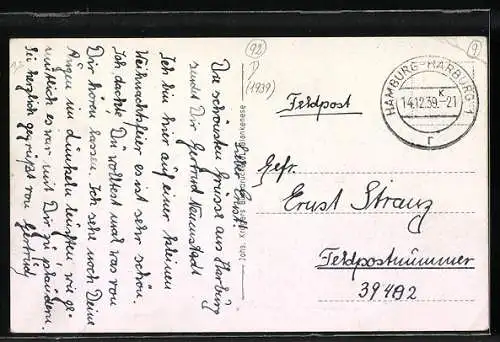 Lieber Ernst!
Die schönsten Grüsse aus Harburg
sendet Dir Gertrud Neunstadt
Ich bin hier auf einer kleinen
Weihnachtsfeier es ist sehr schön.
Ich dachte Du wolltest mal was von
Dir hören lassen. Ich sehe noch Deine
Augen im dunkeln leuchten wie ge-
mütlich es war mit Dir zu plaudern.
Sei herzlich gegrüßt von Gertrud
(92)
P
(1939)
9
Feldpost
HAMBURG-HARBURG 1
K
14.12.39.-21
r
Gefr.
Ernst Stranz
Feldpostnummer
39402